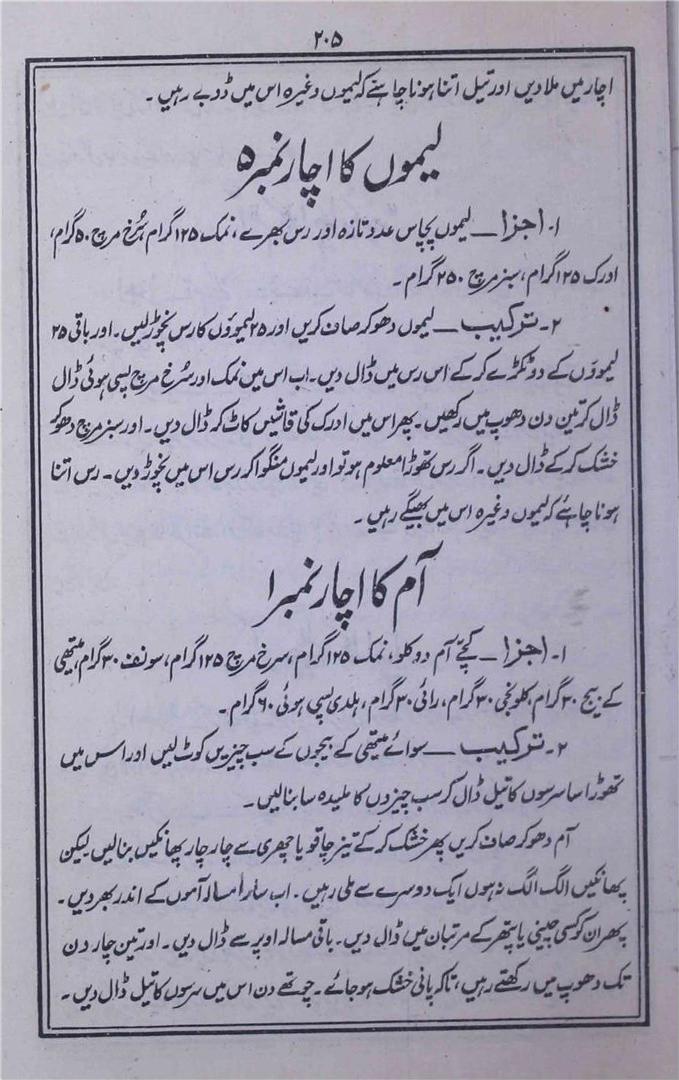 ۲۰۵
اچار میں ملا دیں اور تیل اتنا ہونا چاہئے کہ لیموں وغیرہ اس میں ڈوبے رہیں۔
لیموں کا اچار نمبر ۵
۱۔ اجزا — لیموں پچاس عدد تازہ اور رس بھرے، نمک ۱۲۵ گرام، سُرخ مرچ ۵۰ گرام،
ادرک ۱۲۵ گرام، سبز مرچ ۲۵۰ گرام۔
۲۔ ترکیب — لیموں دھو کر صاف کریں اور ۲۵ لیموؤں کا رس نچوڑ لیں۔ اور باقی ۲۵
لیموؤں کے دو ٹکڑے کر کے اس رس میں ڈال دیں۔ اب اس میں نمک اور سُرخ مرچ پسی ہوئی ڈال
ڈال کر تین دن دھوپ میں رکھیں۔ پھر اس میں ادرک کی قاشیں کاٹ کر ڈال دیں۔ اور سبز مرچ دھو کر
خشک کر کے ڈال دیں۔ اگر رس تھوڑا معلوم ہو تو اور لیموں منگوا کر رس اس میں نچوڑ دیں۔ رس اتنا
ہونا چاہئے کہ لیموں وغیرہ اس میں بھیگے رہیں۔
آم کا اچار نمبر ۱
۱۔ اجزا — کچّے آم دو کلو، نمک ۱۲۵ گرام، سرخ مرچ ۱۲۵ گرام، سونف ۳۰ گرام، میتھی
کے بیج ۳۰ گرام، کلونجی ۳۰ گرام، رائی ۳۰ گرام، ہلدی پسی ہوئی ۶۰ گرام۔
۲۔ ترکیب — سوائے میتھی کے بیجوں کے سب چیزیں کوٹ لیں اور اس میں
تھوڑا سا سرسوں کا تیل ڈال کر سب چیزوں کا ملیدہ سا بنا لیں۔
آم دھو کر صاف کریں پھر خشک کر کے تیز چاقو یا چھری سے چار چار پھانکیں بنا لیں لیکن
پھانکیں الگ الگ نہ ہوں ایک دوسرے سے ملی رہیں۔ اب سارا مسالہ آموں کے اندر بھر دیں۔
پھر ان کو کسی چینی یا پتھر کے مرتبان میں ڈال دیں۔ باقی مسالہ اوپر سے ڈال دیں۔ اور تین چار دن
تک دھوپ میں رکھتے رہیں، تاکہ پانی خشک ہو جائے۔ چوتھے دن اس میں سرسوں کا تیل ڈال دیں۔